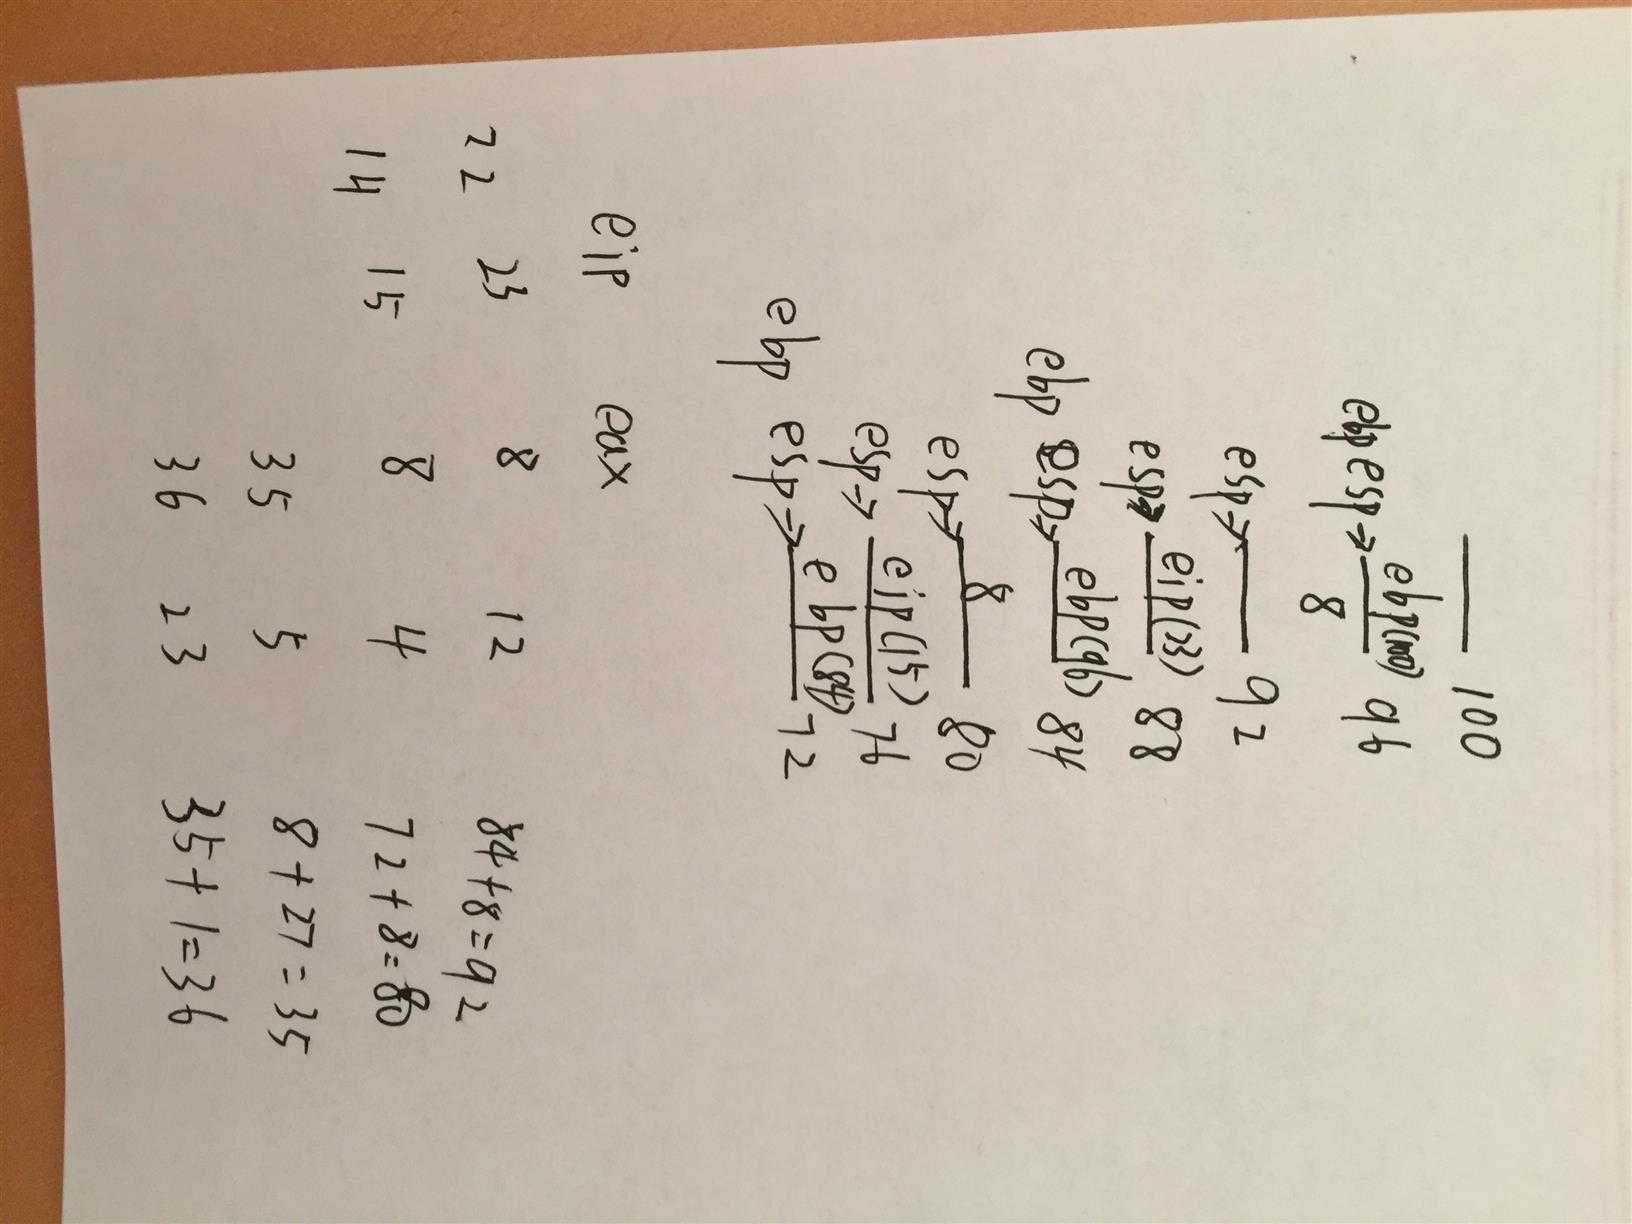 100
ebp esp→ ebp(100) 96
8
esp→ 92
esp→ eip(23) 88
ebp esp→ ebp(96) 84
esp→ 8 80
esp→ eip(15) 76
ebp esp→ ebp(84) 72
eip eax
22 23 8 12 84+8=92
14 15 8 4 72+8=80
35 5 8+27=35
36 23 35+1=36